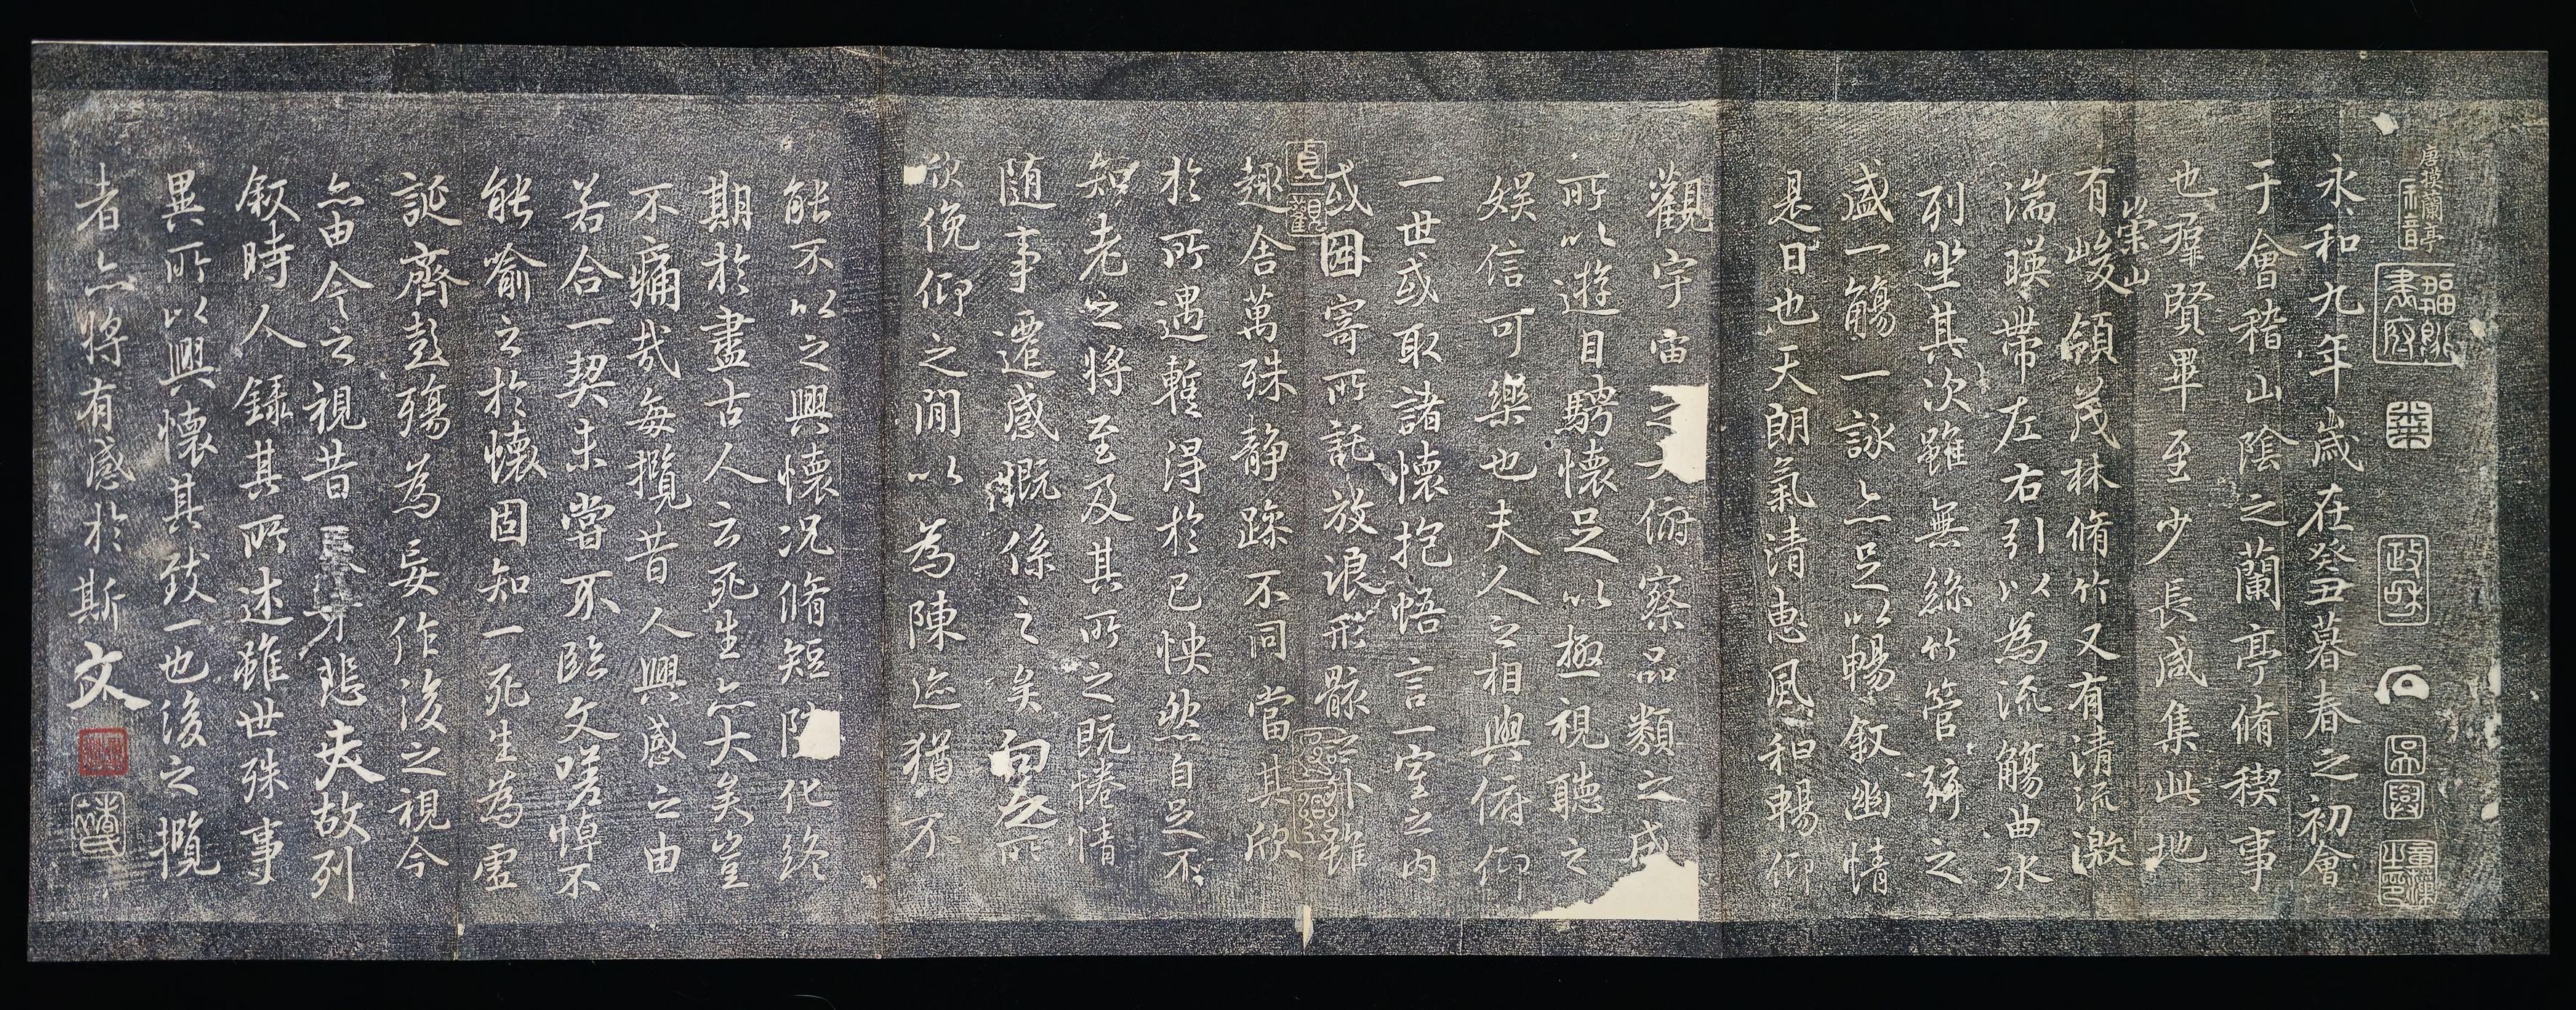 唐摸蘭亭
永和九年歲在癸丑暮春之初會
于會稽山陰之蘭亭脩稧事
也羣賢畢至少長咸集此地
有崇山峻領茂林脩竹又有清流激
湍暎帶左右引以為流觴曲水
列坐其次雖無絲竹管弦之
盛一觴一詠亦足以暢叙幽情
是日也天朗氣清惠風和暢仰
觀宇宙之大俯察品類之盛
所以遊目騁懷足以極視聽之
娛信可樂也夫人之相與俯仰
一世或取諸懷抱悟言一室之內
或因寄所託放浪形骸之外雖
趣舍萬殊靜躁不同當其欣
於所遇暫得於己怏然自足不
知老之將至及其所之既惓情
隨事遷感慨係之矣向之所
欣俛仰之閒以為陳迹猶不
能不以之興懷況脩短隨化終
期於盡古人云死生亦大矣豈
不痛哉每攬昔人興感之由
若合一契未嘗不臨文嗟悼不
能喻之於懷固知一死生為虛
誕齊彭殤為妄作後之視今
亦由今之視昔悲夫故列
叙時人錄其所述雖世殊事
異所以興懷其致一也後之攬
者亦將有感於斯文